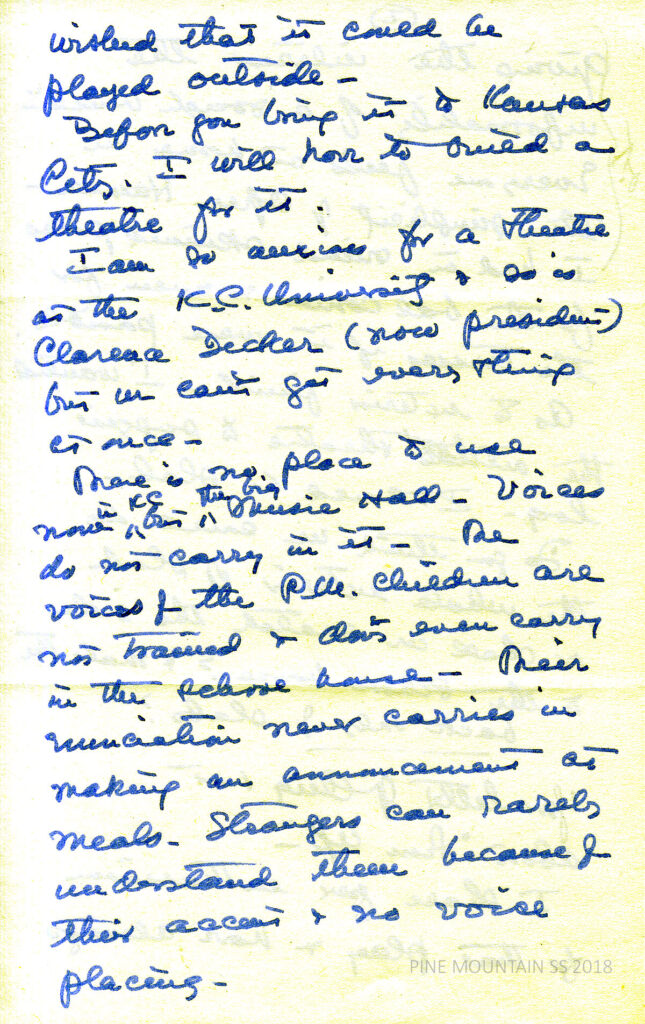 wished that it could be
played outside –
Before you bring it to Kansas
City. I will have to build a
theatre for it.
I am so anxious for a theatre
at the K.C. University & so is
Clarence Decker (now president)
but we can't get every thing
at once –
There is no place to use
now in KC but the big Music Hall – Voices
do not carry in it – The
voices of the P.M. children are
not trained & don't even carry
in the school house – Their
enunciation never carries in
making an announcement at
meals – Strangers can rarely
understand them because of
their accent & no voice
placing –
PINE MOUNTAIN SS 2018